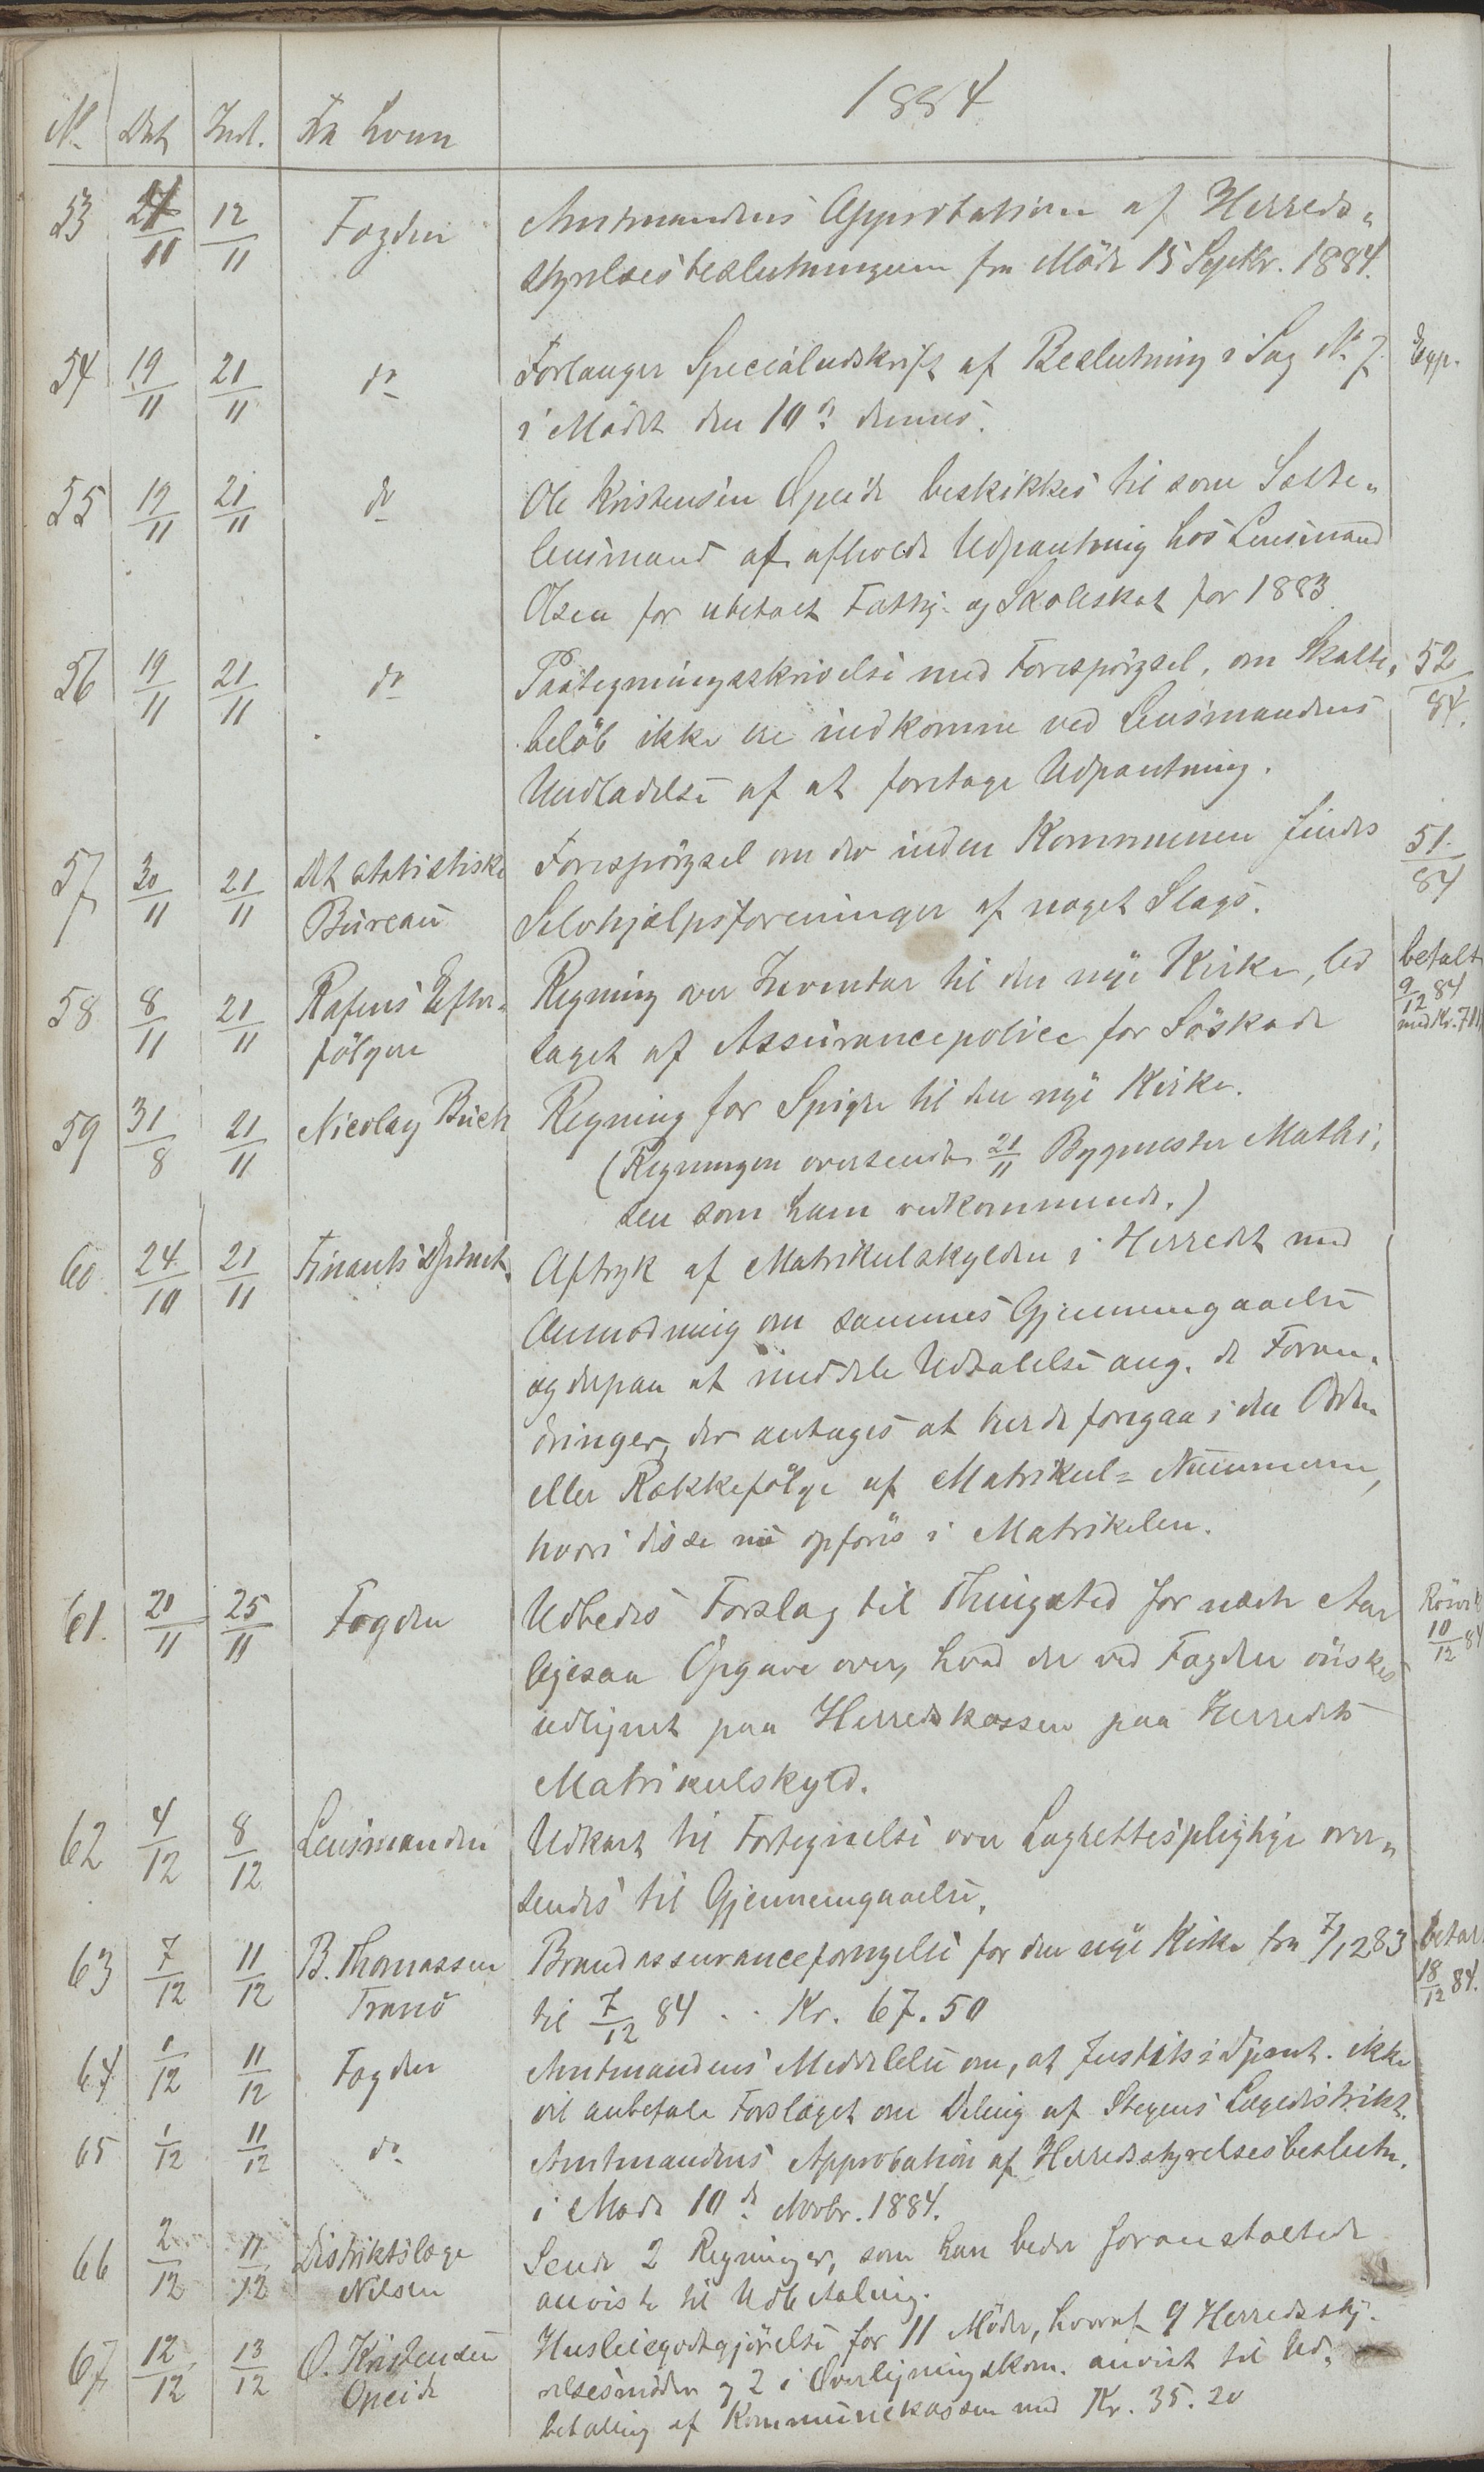 1884
No. Dat. Indl. Fra hvem
53 21/11 12/11 Fogden Amtmandens Approbation af Herreds„
styrelsesbeslutningerne fra Möde 15 Septbr. 1884.
54 19/11 21/11 do Forlanger Specialudskrift af Beslutning i Sag No 7 Exp.
i Mödet den 10de dennes.
55 19/11 21/11 do Ole Kristensen Opeide beskikkes til som Sætte„
lensmand at afholde Udpantning hos Lensmand
Olsen for ubetalt Fattig- og Skoleskat for 1883.
56 19/11 21/11 do Paategningsskrivelse med Forespörgsel, om Skatte„ 52/84.
belöb ikke ere indkomne ved Lensmandens
Undladelse af at foretage Udpantning.
57 30/11 21/11 Det statistiske Forespörgsel om der inden Kommunen findes 51/84
Bureau Selvhjælpsforeninger af noget Slags.
58 8/11 21/11 Rafens Efter„ Regning over Inventar til den nye Kirke, led betalt
fölgere saget af Assurancepolice for Söskade 9/12 84
med Kr. 711
59 31/8 21/11 Nicolay Buch Regning for Spiger til den nye Kirke.
(Regningen oversendt 21/11 Bygmester Mathi„
sen som ham vedkommende.)
60 24/10 21/11 Finants Dptmt. Aftryk af Matrikulskylden i Herredet med
Anmodning om sammes Gjennemgaaelse
og derpaa at meddele Udtalelse ang. de Foran„
dringer, der antages at burde foregaa i den Orden
eller Rækkefölge af Matrikul= Nummerne,
hvori disse nu opföres i Matrikelen.
61. 20/11 25/11 Fogden Udbedes Forslag til Thingsted for næste Aar
ligesaa Opgave over, hvad der ved Fogden önskes 10/12 84
udlignet paa Herredskassen paa Herredets
Matrikulskyld.
62 4/12 8/12 Lensmanden Udkast til Fortegnelse over Lagrettespligtige over„
sendes til Gjennemgaaelse.
63 7/12 11/12 B. Thomassen Brandassurancefornyelse for den nye Kirke fra 7/12 83 betalt
Tranö til 7/12 84 . . Kr. 67.50 18/12 84.
64 1/12 11/12 Fogden Amtmandens Meddelelse om, at Justitsdpmt. ikke
vil anbefale Forslaget om Deling af Stegens Lægedistrikt.
65 1/12 11/12 do Amtmandens Approbation af Herredsstyrelsesbeslutn.
i Möde 10de Novbr. 1884.
66 2/12 11/12 Distriktslæge Sender 2 Regninger, som han beder foranstaltede
Nilsen anviste til Udbetaling.
67 12/12 13/12 O. Kristensen Husleiegodtgjörelse for 11 Möder, hvoraf 9 Herredssty„
Opeide relsesmöder og 2 i Overligningskom. anvist til Ud„
betaling af Kommunekassen med Kr. 35.20